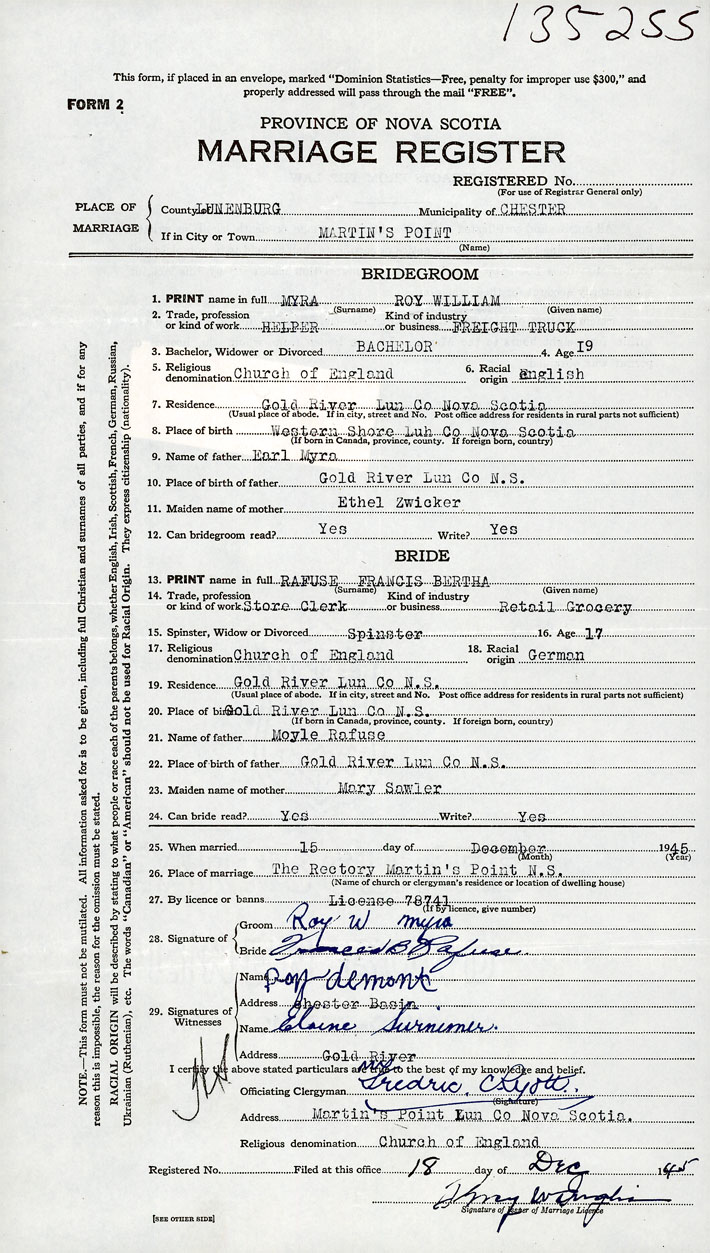 135255
This form, if placed in an envelope, marked "Dominion Statistics—Free, penalty for improper use $300," and
properly addressed will pass through the mail "FREE".
FORM 2
PROVINCE OF NOVA SCOTIA
MARRIAGE REGISTER
REGISTERED No.
(For use of Registrar General only)
PLACE OF MARRIAGE
County of LUNENBURG Municipality of CHESTER
If in City or Town MARTIN'S POINT
(Name)
BRIDEGROOM
1. PRINT name in full MYRA ROY WILLIAM
(Surname) (Given name)
2. Trade, profession or kind of work HELPER Kind of industry or business FREIGHT TRUCK
3. Bachelor, Widower or Divorced BACHELOR 4. Age 19
5. Religious denomination Church of England 6. Racial origin English
7. Residence Gold River Lun Co Nova Scotia
(Usual place of abode. If in city, street and No. Post office address for residents in rural parts not sufficient)
8. Place of birth Western Shore Luh Co Nova Scotia
(If born in Canada, province, county. If foreign born, country)
9. Name of father Earl Myra
10. Place of birth of father Gold River Lun Co N.S.
11. Maiden name of mother Ethel Zwicker
12. Can bridegroom read? Yes Write? Yes
BRIDE
13. PRINT name in full RAFUSE FRANCIS BERTHA
(Surname) (Given name)
14. Trade, profession or kind of work Store Clerk Kind of industry or business Retail Grocery
15. Spinster, Widow or Divorced Spinster 16. Age 17
17. Religious denomination Church of England 18. Racial origin German
19. Residence Gold River Lun Co N.S.
(Usual place of abode. If in city, street and No. Post office address for residents in rural parts not sufficient)
20. Place of birth Gold River Lun Co N.S.
(If born in Canada, province, county. If foreign born, country)
21. Name of father Moyle Rafuse
22. Place of birth of father Gold River Lun Co N.S.
23. Maiden name of mother Mary Sawler
24. Can bride read? Yes Write? Yes
25. When married 15 day of December 1945
(Month) (Year)
26. Place of marriage The Rectory Martin's Point N.S.
(Name of church or clergyman's residence or location of dwelling house)
27. By licence or banns License 78741
(If by licence, give number)
28. Signature of
Groom Roy W myra
Bride Frances B Rafuse
29. Signatures of Witnesses
Name Roy demont
Address Chester Basin
Name Elaine
Address Gold River
I certify the above stated particulars are true to the best of my knowledge and belief.
Officiating Clergyman Fredric C
(Signature)
Address Martin's Point Lun Co Nova Scotia.
Religious denomination Church of England
Registered No. Filed at this office 18 day of Dec 1945
Signature of Issuer of Marriage Licence
[SEE OTHER SIDE]
NOTE.—This form must not be mutilated. All information asked for is to be given, including full Christian and surnames of all parties, and if for any
reason this is impossible, the reason for the omission must be stated.
RACIAL ORIGIN will be described by stating to what people or race each of the parents belongs, whether English, Irish, Scottish, French, German, Russian,
Ukrainian (Ruthenian), etc. The words "Canadian" or "American" should not be used for Racial Origin. They express citizenship (nationality).